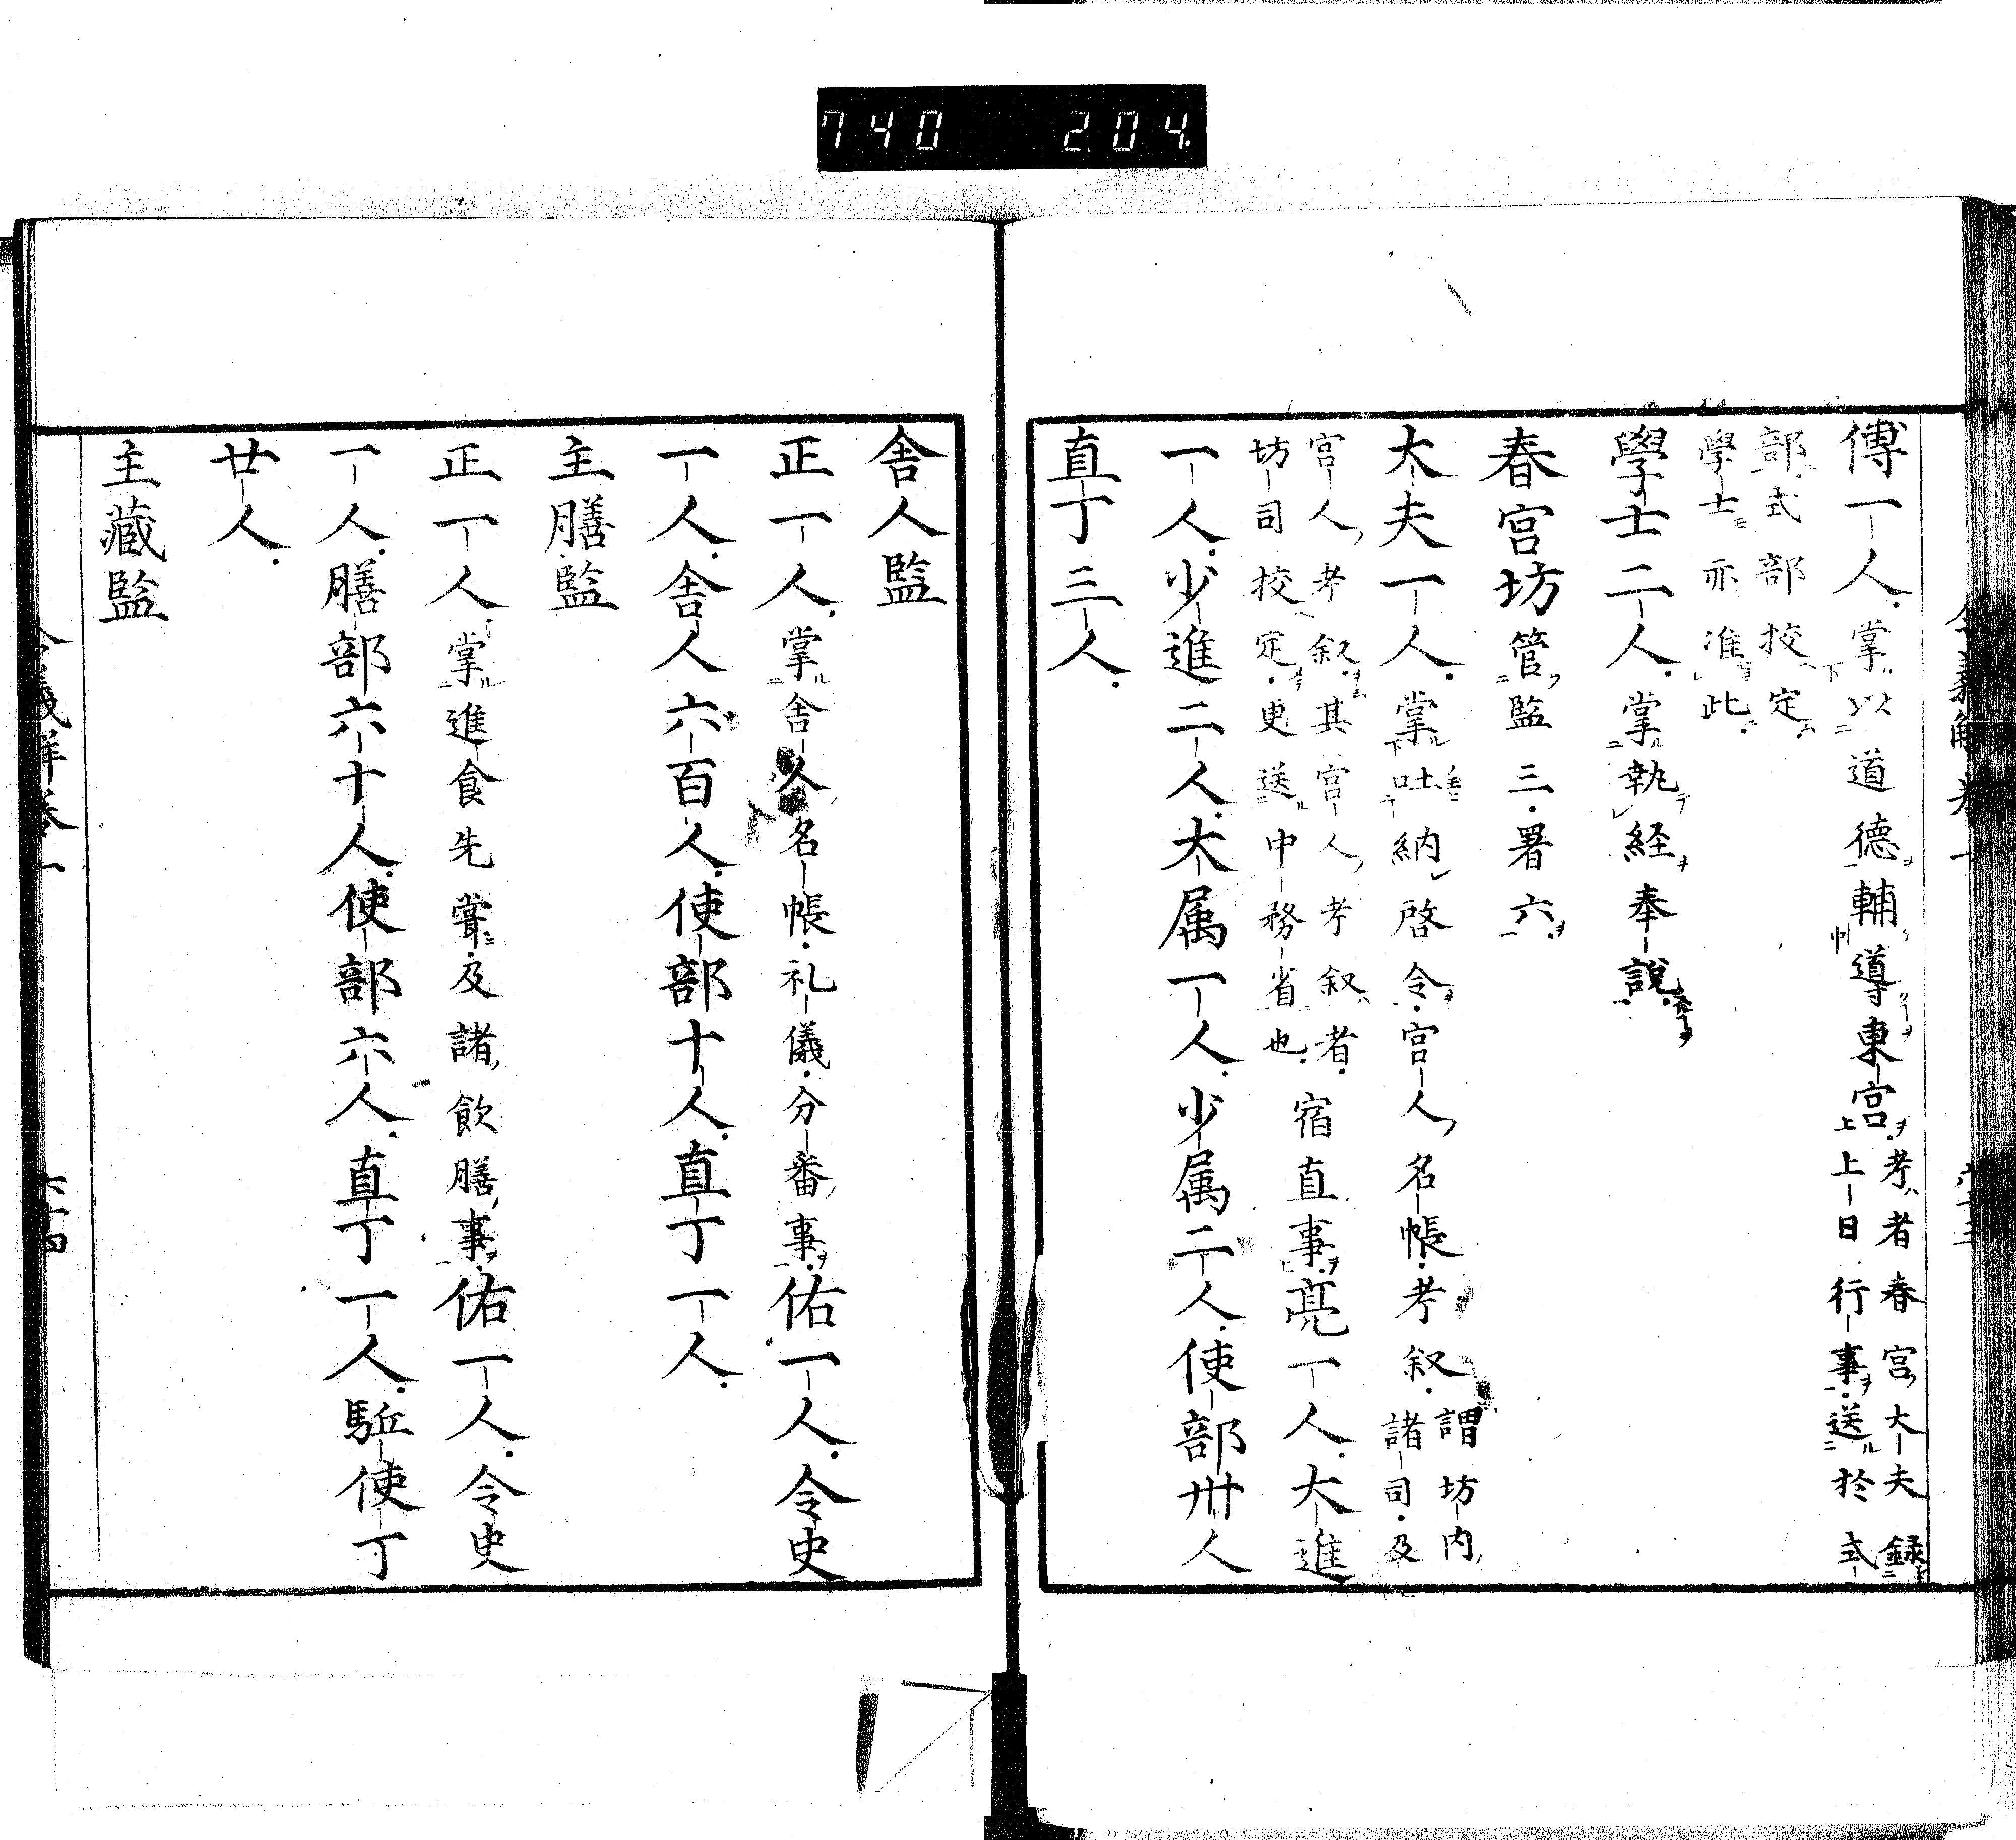 740 204
傅一人掌以道德輔導東宮考者春宮大夫録
上日行事送於式
部式部挍定
學士亦准此
學士二人掌執経奉說
春宮坊管監三署六
大夫一人掌吐納啓令宮人名帳考叙謂坊内
諸司及
宮人考叙其宮人考叙者
坊司挍定更送中務省也
宿直事亮一人大進
一人少進二人大属一人少属二人使部卅人
直丁三人
舎人監
正一人掌舎人名帳礼儀分番事佑一人令史
一人舎人六百人使部十人直丁一人
主膳監
正一人掌進食先嘗及諸飲膳事佑一人令史
一人膳部六十人使部六人直丁一人駈使丁
廿人
主蔵監